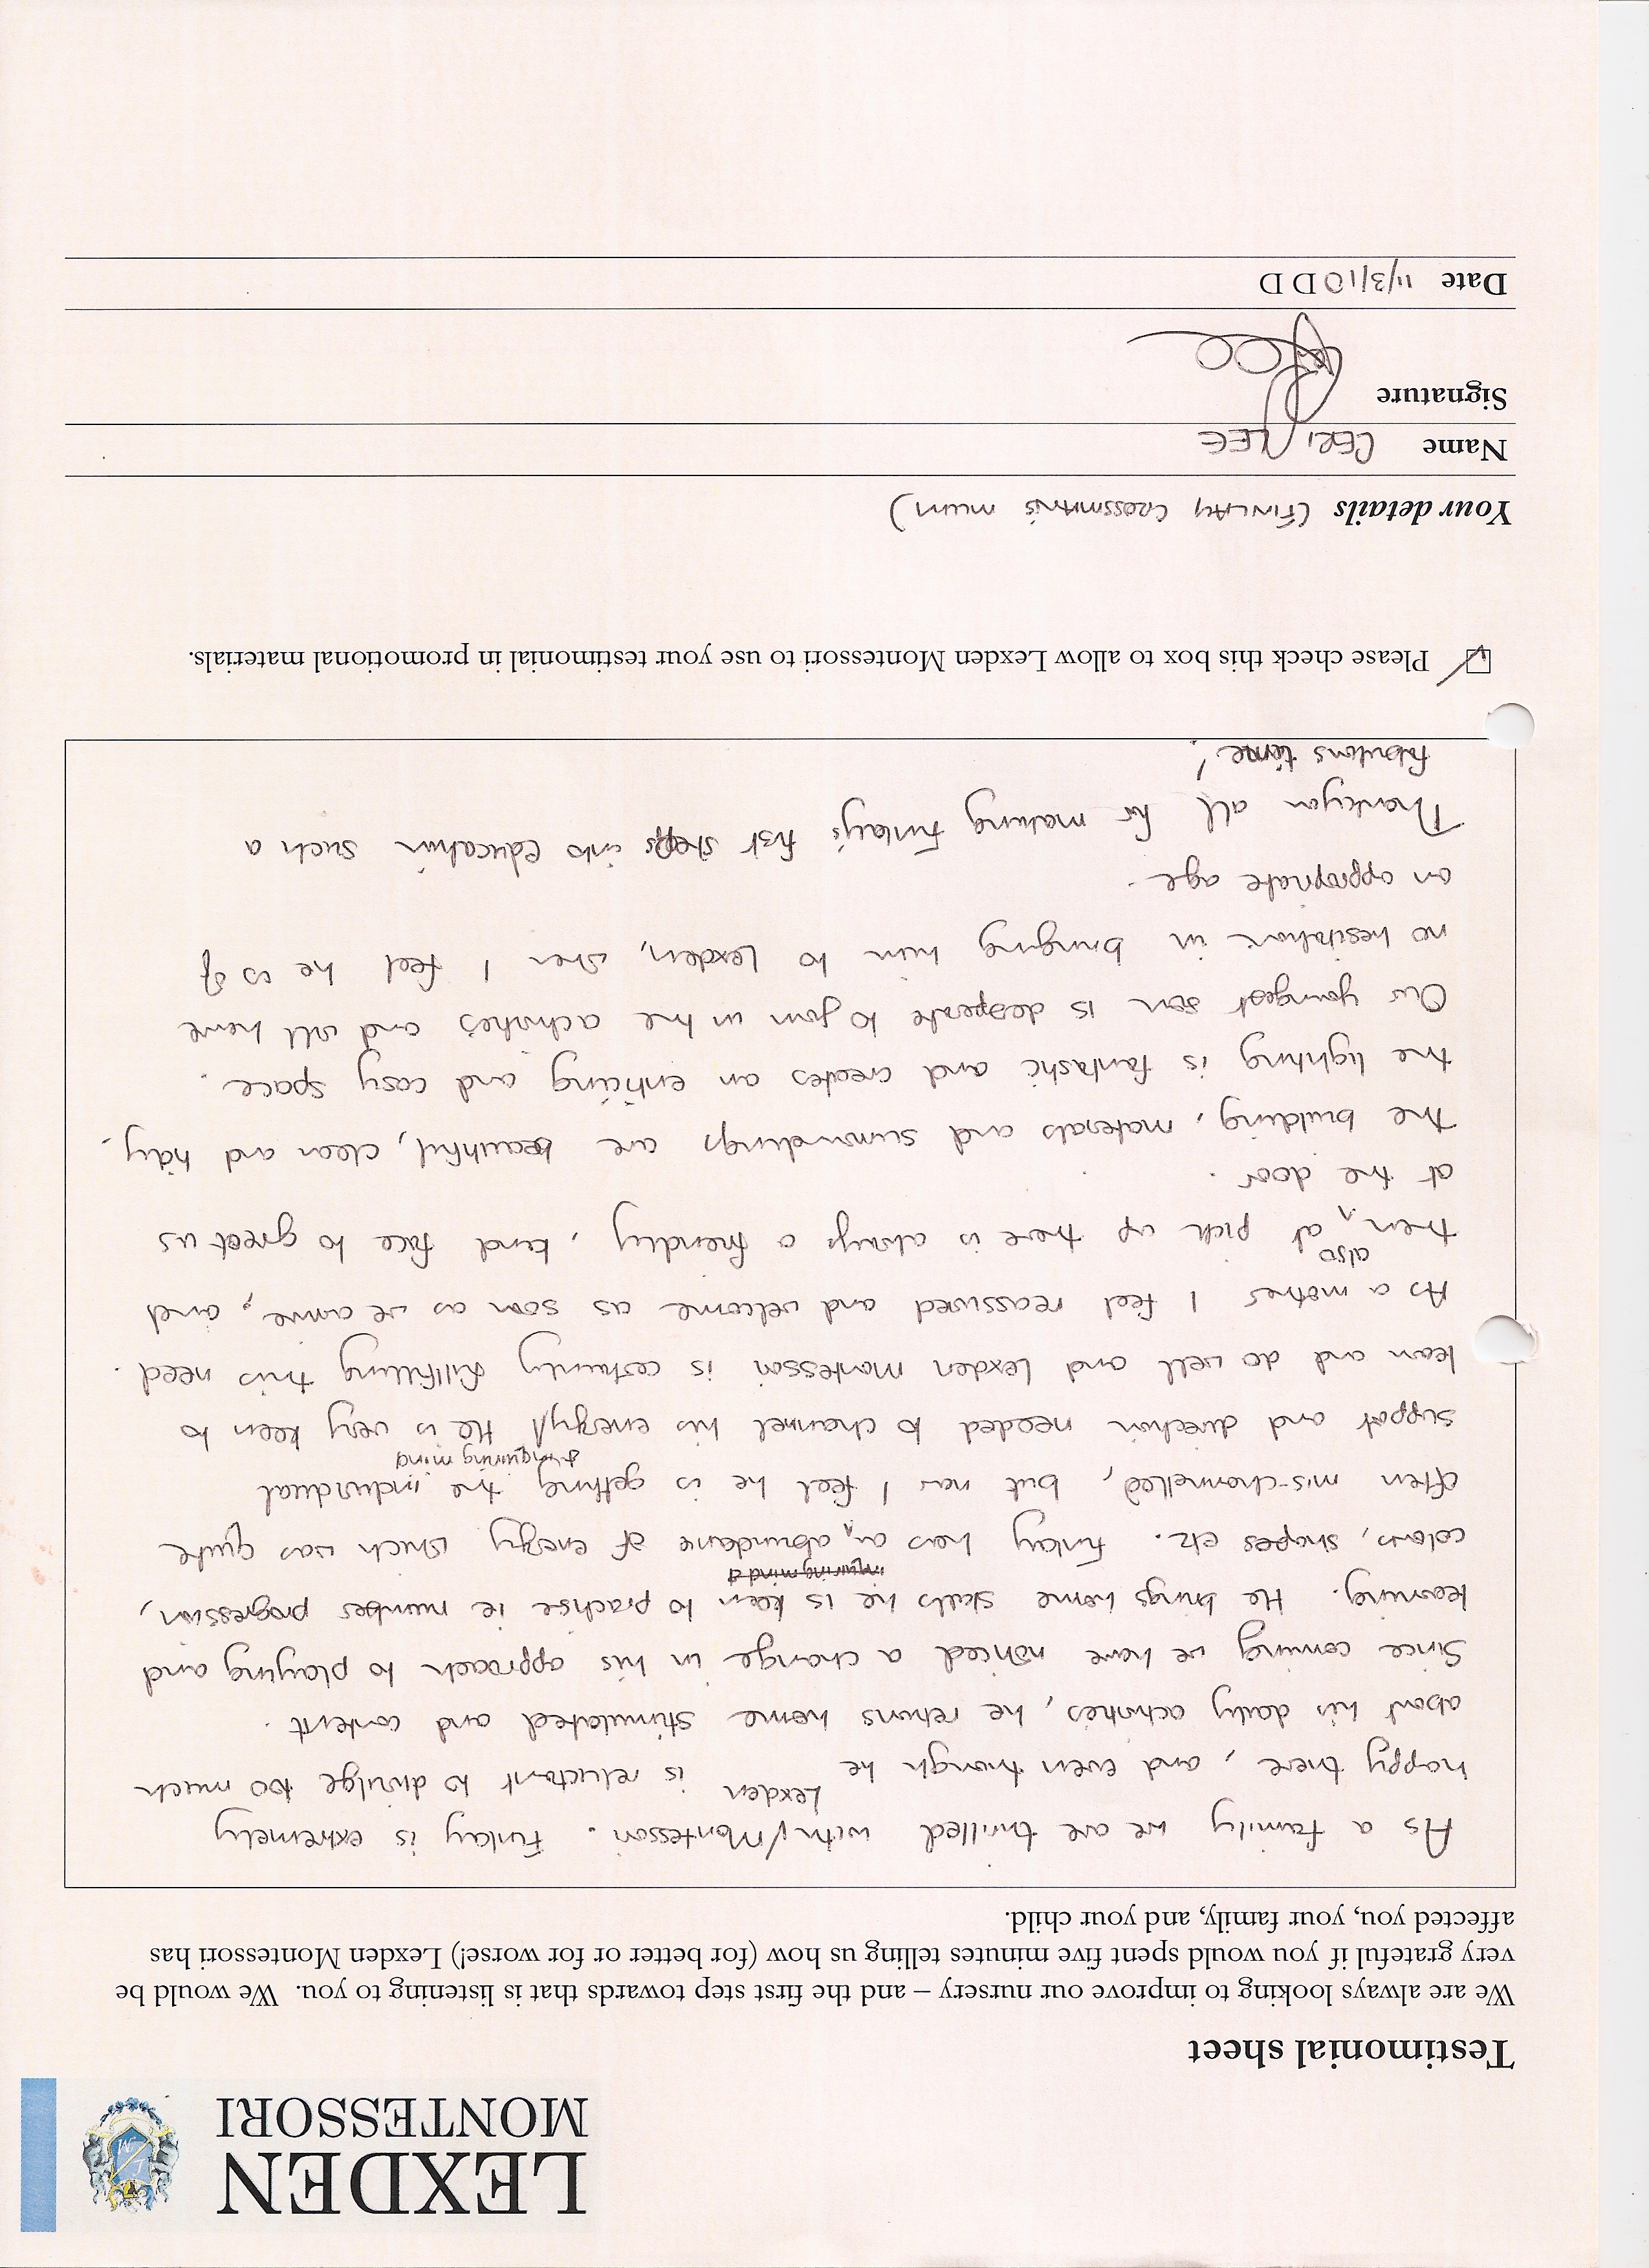 LEXDEN
MONTESSORI
Testimonial sheet
We are always looking to improve our nursery – and the first step towards that is listening to you. We would be
very grateful if you would spent five minutes telling us how (for better or for worse!) Lexden Montessori has
affected you, your family, and your child.
As a family we are thrilled with / Montessori. Finlay is extremely
Lexden
happy there, and even though he is reluctant to divulge too much
about his daily activities, he returns home stimulated and content.
Since coming we have noticed a change in his approach to playing and
learning. He brings home skills he is keen to practise ie number progression,
inquiring mind &
colours, shapes etc. Finlay has an abundance of energy which was quite
often mis-channelled, but now I feel he is getting the individual
& inquiring mind
support and direction needed to channel his energy/ He is very keen to
learn and do well and Lexden montessori is certainly fullfilling this need.
As a mother I feel reassured and welcome as soon as we arrive, and
also
then at pick up there is always a friendly, kind face to greet us
at the door.
The building, materials and surroundings are beautiful, clean and tidy.
the lighting is fantastic and creates an enticing and cosy space.
Our youngest son is desperate to join in the activities and will have
no hesitation in bringing him to Lexden, when I feel he is of
an appropriate age.
Thankyou all for making Finlay's first steps into education such a
fabulous time!
Please check this box to allow Lexden Montessori to use your testimonial in promotional materials.
Your details (FINLAY CROSSMAN'S mum)
Name CERI LEE
Signature
Date 11/3/10 D D